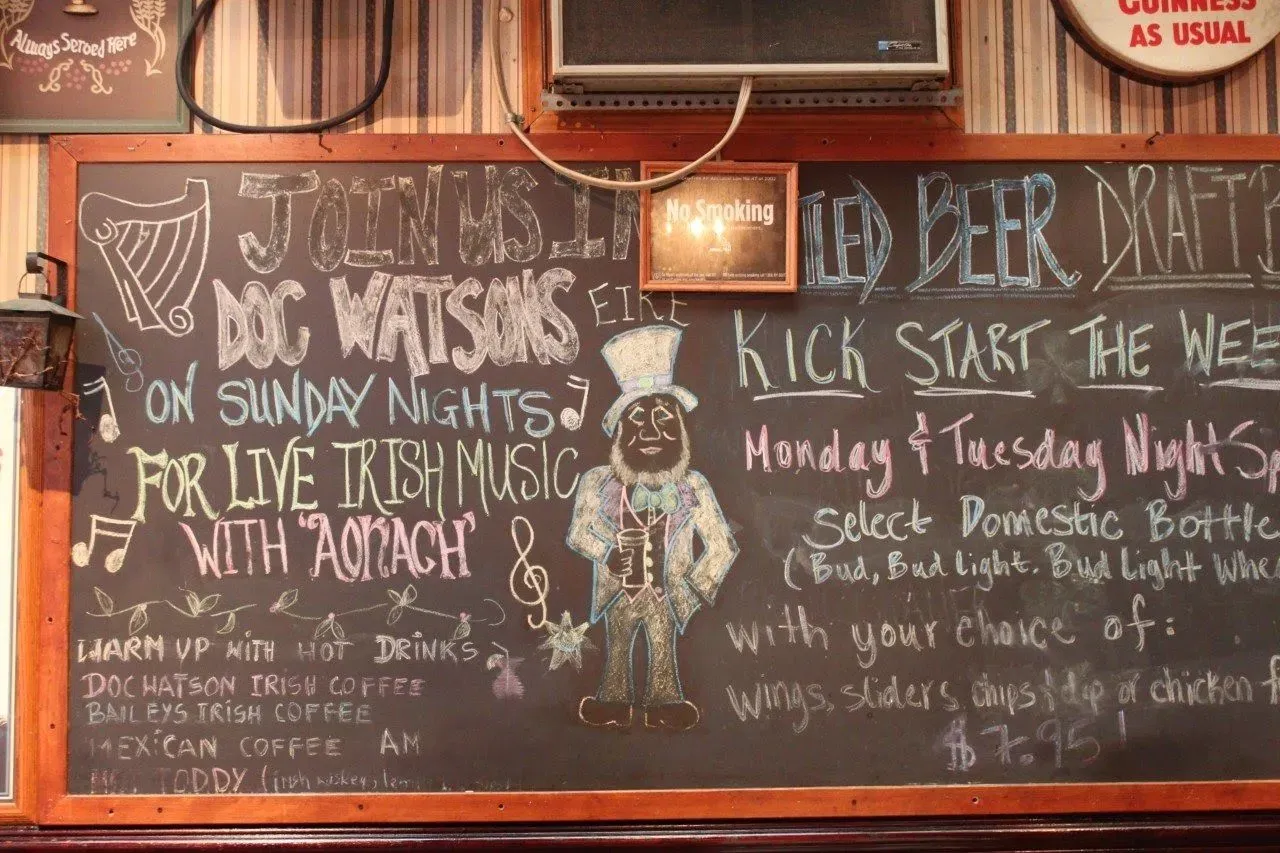 Always Served Here
GUINNESS
AS USUAL
No Smoking
JOIN US IN
DOC WATSONS
EIRE
ON SUNDAY NIGHTS
FOR LIVE IRISH MUSIC
WITH 'AONACH'
WARM UP WITH HOT DRINKS
DOC WATSON IRISH COFFEE
BAILEYS IRISH COFFEE
MEXICAN COFFEE AM
TODDY (irish whiskey,
TLED BEER DRAFT B
KICK START THE WEE
Monday & Tuesday Night Sp
Select Domestic Bottle
(Bud, Bud Light, Bud Light Whe
with your choice of:
wings, sliders, chips & dip or chicken f
$7.95!